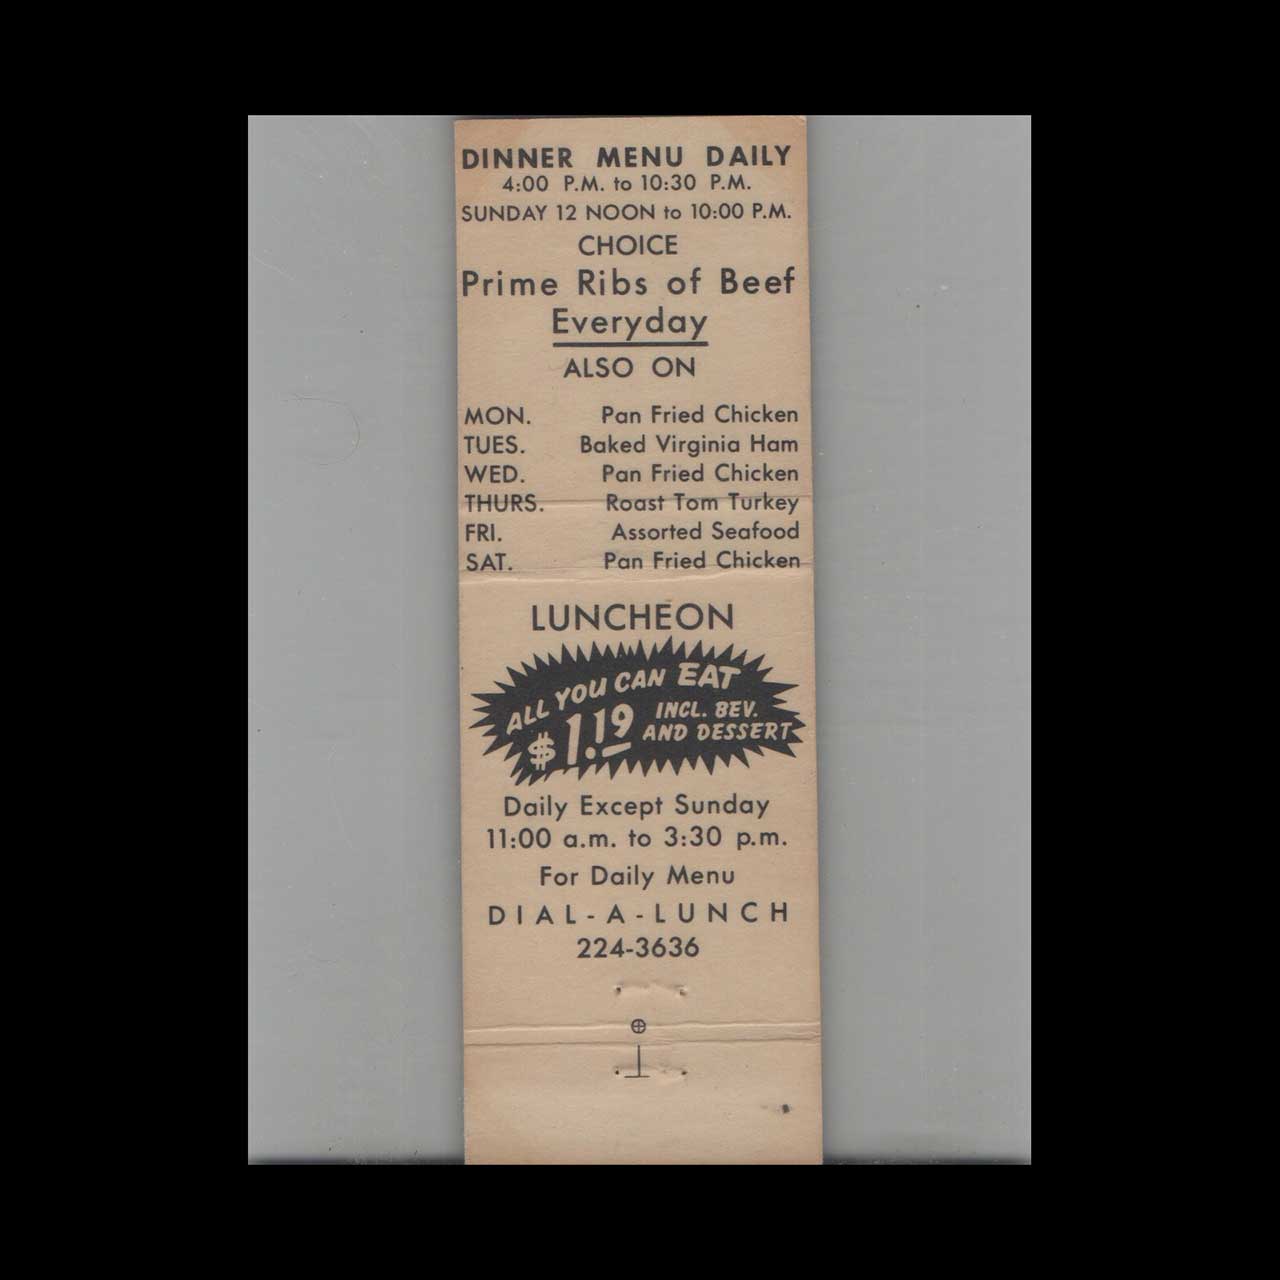 DINNER MENU DAILY
4:00 P.M. to 10:30 P.M.
SUNDAY 12 NOON to 10:00 P.M.
CHOICE
Prime Ribs of Beef
Everyday
ALSO ON
MON. Pan Fried Chicken
TUES. Baked Virginia Ham
WED. Pan Fried Chicken
THURS. Roast Tom Turkey
FRI. Assorted Seafood
SAT. Pan Fried Chicken
LUNCHEON
ALL YOU CAN EAT
$1.19 INCL. BEV.
AND DESSERT
Daily Except Sunday
11:00 a.m. to 3:30 p.m.
For Daily Menu
DIAL-A-LUNCH
224-3636